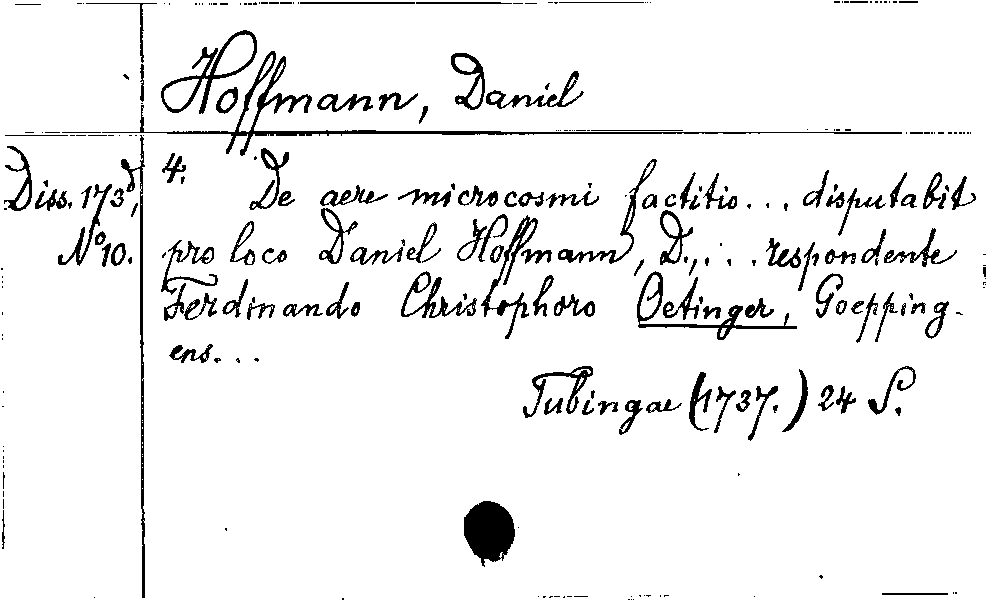 Hoffmann, Daniel
Diss. 173d,
No 10.
4. De aere microcosmi factitio... disputabit
pro loco Daniel Hoffmann, D.,... respondente
Ferdinando Christophoro Oetinger, Goepping-
ens...
Tubingae (1737.) 24 S.